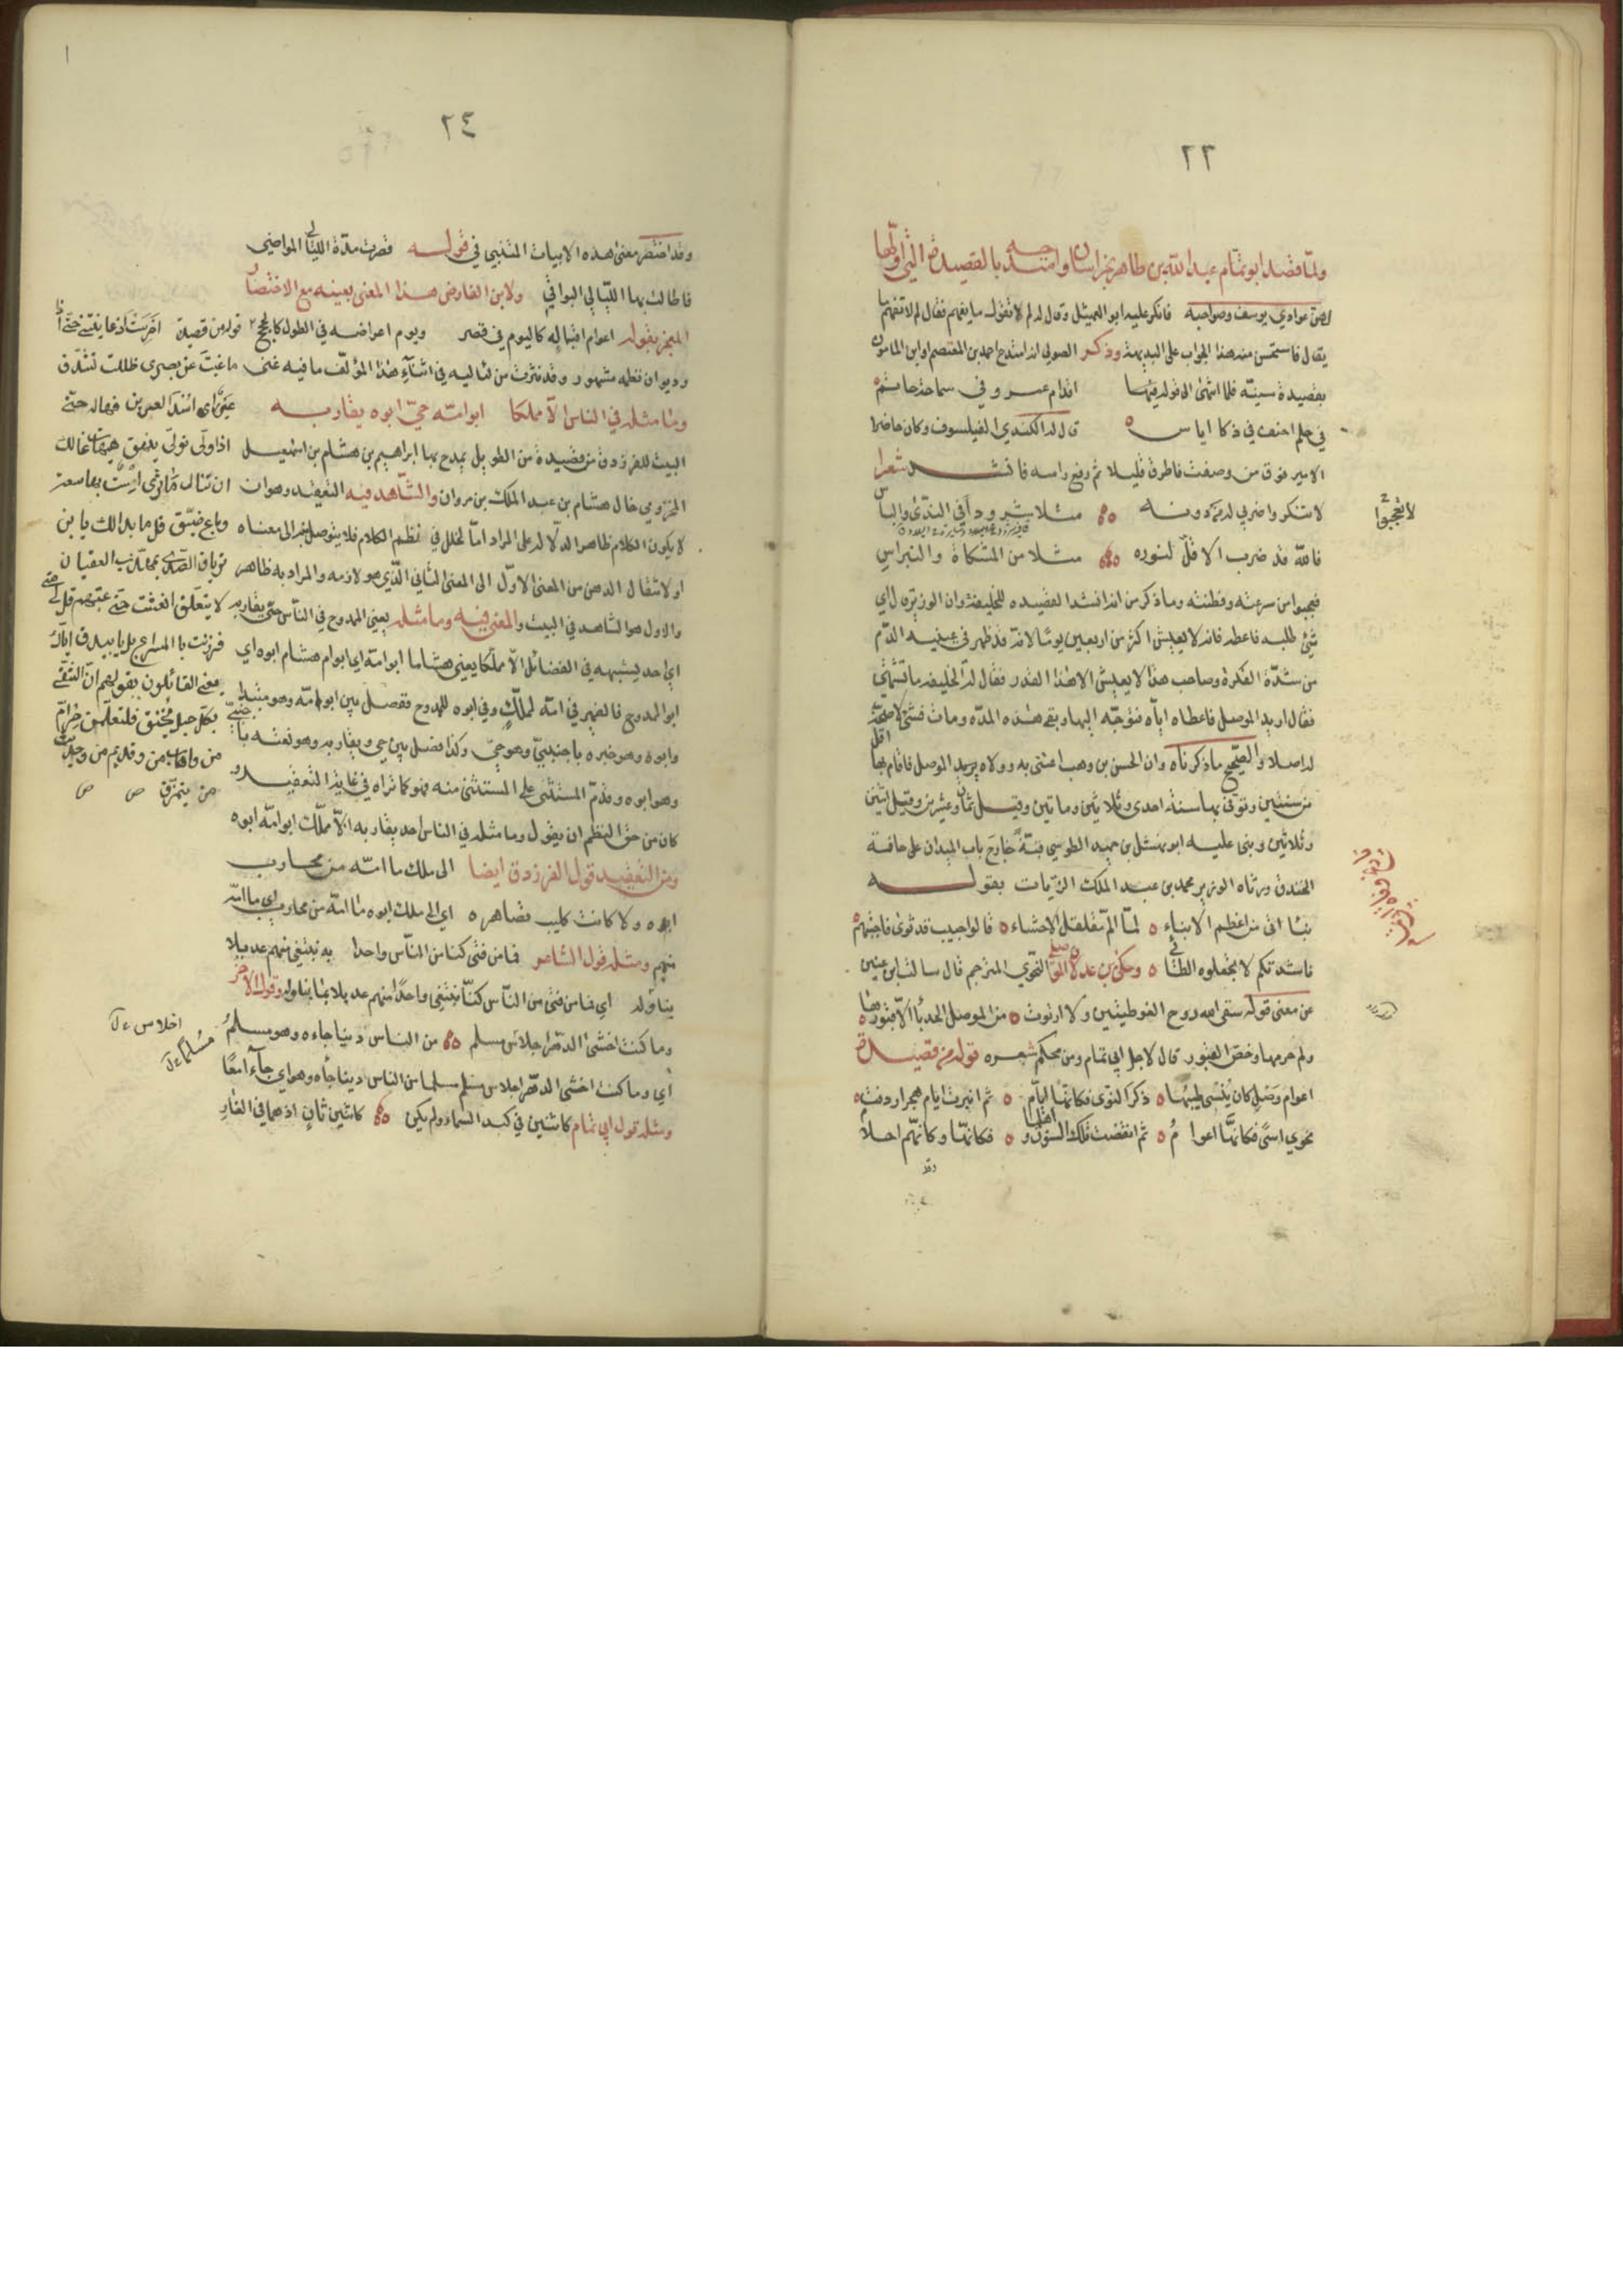 ٢٣
ولما قصد ابو تمام عبد الله بن طاهر بخراسان وامتدحه بالقصيدة التي اولها
هن عوادي يوسف وصواحبه فانكر عليه ابو العميثل وقال له لم لا تقول ما يفهم فقال لم لا تفهم ما
يقال فاستحسن منه هذا الجواب على البديهة وذكر الصولي انه امتدح احمد بن المعتصم او ابن المامون
بقصيدة سينيه فلما انتهى الى قوله فيها اقدام عمرو في سماحة حاتم
في حلم احنف في ذكا اياس قال له الكندي الفيلسوف وكان حاضرا
الامير فوق من وصفت فاطرق قليلا ثم رفع راسه فانشد شعرا
لا تنكروا ضربي له من دونه مثلا شرودا في الندى والباس
لا تعجبوا
فالله قد ضرب الاقل لنوره مثلا من المشكاة والنبراس
فعجبوا من سرعته وفطنته وما ذكر من انه انشد القصيده للخليفة وان الوزير قال اي
شئ طلبه فاعطه فانه لا يعيش اكثر من اربعين يوما لانه قد ظهر في عينيه الدم
من شدة الفكرة وصاحب هذا لا يعيش الا هذا القدر فقال له الخليفه ما تشتهي
فقال اريد الموصل فاعطاه اياه فتوجه اليها وبقي هذه المده ومات فشئ لا صحة
له اصلا والصحيح ما ذكرناه وان الحسن بن وهب اعتنى به وولاه بريد الموصل فاقام بها اقل
من سنتين وتوفي بها سنة احدى وثلاثين وماتين وقيل ثمان وعشرين وقيل اثنين
وثلاثين وبنى عليه ابو نهشل بن حميد الطوسي قبة خارج باب الميدان على حافة
الخندق ورثاه الوزير محمد بن عبد الملك الزيات بقوله
نبا اتى من اعظم الانباء لما الم مقلقل الاحشاء قالوا حبيب قد ثوى فاجبتهم
ناشدتكم لا تجعلوه الطائي وحكى بن عدلان الموصلي النحوي المترجم قال سالت ابن عنين
عن معنى قوله سقى الله روح الغوطتين ولا ارتوت من الموصل الحدبا الا قبورها
ولم حرمها وخص القبور قال لاجل ابي تمام ومن محكم شعره قوله من قصيدة
اعوام وصل كان ينسي طيبها ذكر النوى فكانها ايام ثم انبرت ايام هجر اردفت
نحوي اسى فكانها اعوام ثم انقضت تلك السنون واهلها فكانها وكانهم احلام
وقد
٢٤
وقد اختصر معنى هذه الابيات المتنبي في قوله قصرت مدة الليالي المواضي
فاطالت بها الليالي البواقي ولابن الفارض هذا المعنى بعينه مع الاختصار
المعجز بقوله اعوام اقباله كاليوم في قصر ويوم اعراضه في الطول كالحجج
وديوان نظمه مشهور وقد نثرت من لئاليه في اثناء هذا المؤلف ما فيه غنى
وما مثله في الناس الا مملكا ابو امه حي ابوه يقاربه
البيت للفرزدق من قصيدة من الطويل يمدح بها ابراهيم بن هشام بن اسمعيل
المخزومي خال هشام بن عبد الملك بن مروان والشاهد فيه التعقيد وهو ان
لا يكون الكلام ظاهر الدلالة على المراد اما لخلل في نظم الكلام فلا يتوصل منه الى معناه
او لانتقال الذهن من المعنى الاول الى المعنى الثاني الذي هو لازمه والمراد به ظاهر
والاول هو الشاهد في البيت والمعنى فيه وما مثله يعني الممدوح في الناس حي يقاربه
اي احد يشبهه في الفضائل الا مملكا يعني هشاما ابو امه اي ابو ام هشام ابوه اي
ابو الممدوح فالضمير في امه لمملك وفي ابوه للممدوح ففصل بين ابو امه وهو مبتدا
وابوه وهو خبره باجنبي وهو حي وكذا فصل بين حي ويقاربه وهو نعته باجنبي
وهو ابوه وقدم المستثنى على المستثنى منه فهو كما تراه في غاية التعقيد و
كان من حق النظم ان يقول وما مثله في الناس احد يقاربه الا مملك ابو امه ابوه
ومن التعقيد قول الفرزدق ايضا الى ملك ما امه من محارب
ابوه ولا كانت كليب تصاهره اي الى ملك ابوه ما امه من محارب اي ما امه
منهم ومثله قول الشاعر فما من فتى كنا من الناس واحدا به نبتغي منهم عديلا
يناوله اي فما من فتى من الناس كنا نبتغي واحدا منهم عديلا بما يناوله وقول الاخر
وما كنت اخشى الدهر اجلاس مسلم من الناس دينا جاءه وهو مسلم
اي وما كنت اخشى الدهر اجلاس مسلم مسلما من الناس دينا جاءه وهو اي جاآ معا
ومثله قول ابي تمام كاثنين في كبد السماء ولم يكن كاثنين ثان اذ هما في الغار
قوله من قصيدة
ما غبت عن بصري ظللت
اذا ولى تولى
وباع ضيق قل ما بدا لك يا بن
ترياق
معنى القائلون بقولهم ان
بكل حبل
احلاس
مسلما